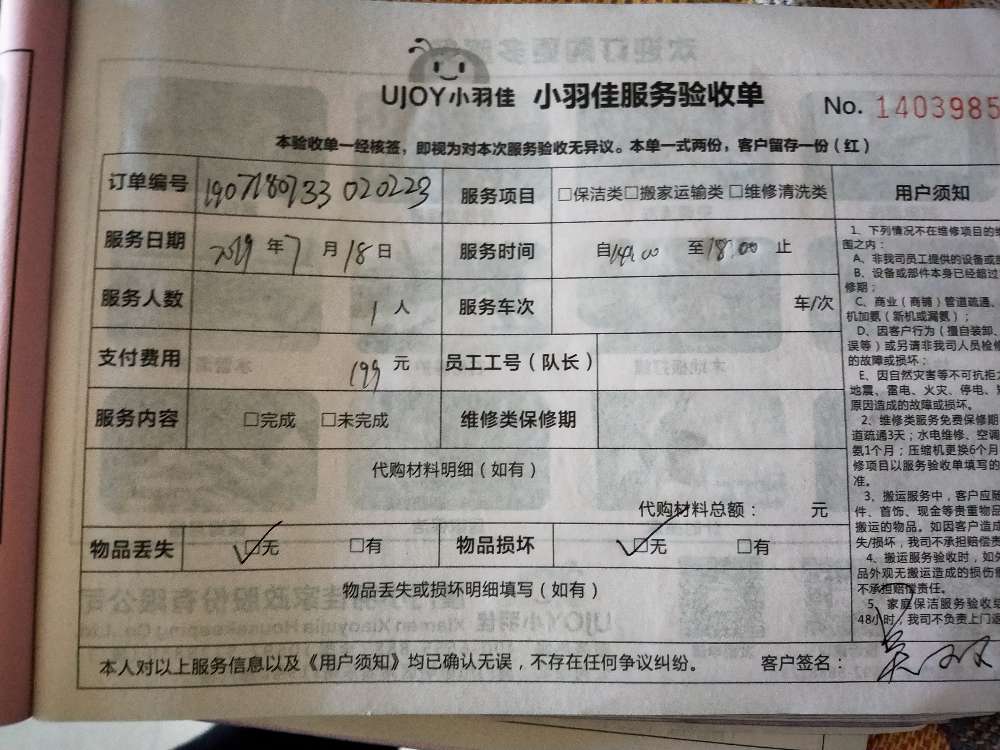 UJOY小羽佳 小羽佳服务验收单 No. 1403985
本验收单一经核签，即视为对本次服务验收无异议。本单一式两份，客户留存一份（红）
订单编号 1907180733020223 服务项目 □保洁类□搬家运输类 □维修清洗类 用户须知
服务日期 2019年7月18日 服务时间 自14:00 至18:00 止
服务人数 1人 服务车次 车/次
支付费用 199元 员工工号（队长）
服务内容 □完成 □未完成 维修类保修期
代购材料明细（如有）
代购材料总额： 元
物品丢失 ☑无 □有 物品损坏 ☑无 □有
物品丢失或损坏明细填写（如有）
本人对以上服务信息以及《用户须知》均已确认无误，不存在任何争议纠纷。 客户签名：
1、下列情况不在维修项目的
围之内：
A、非我司员工提供的设备或
B、设备或部件本身已经超过
修期；
C、商业（商铺）管道疏通、
机加氨（新机或漏氨）；
D、因客户行为（擅自装卸、
误等）或另请非我司人员检修
的故障或损坏；
E、因自然灾害等不可抗拒
地震、雷电、火灾、停电、
原因造成的故障或损坏。
2、维修类服务免费保修期
道疏通3天；水电维修、空调
氨1个月；压缩机更换6个月
修项目以服务验收单填写的
准。
3、搬运服务中，客户应
件、首饰、现金等贵重物品
搬运的物品。如因客户造成
失/损坏，我司不承担赔偿责
4、搬运服务验收时，如
品外观无搬运造成的损伤
不承担赔偿责任。
5、家庭保洁服务验收
48小时，我司不负责上门返